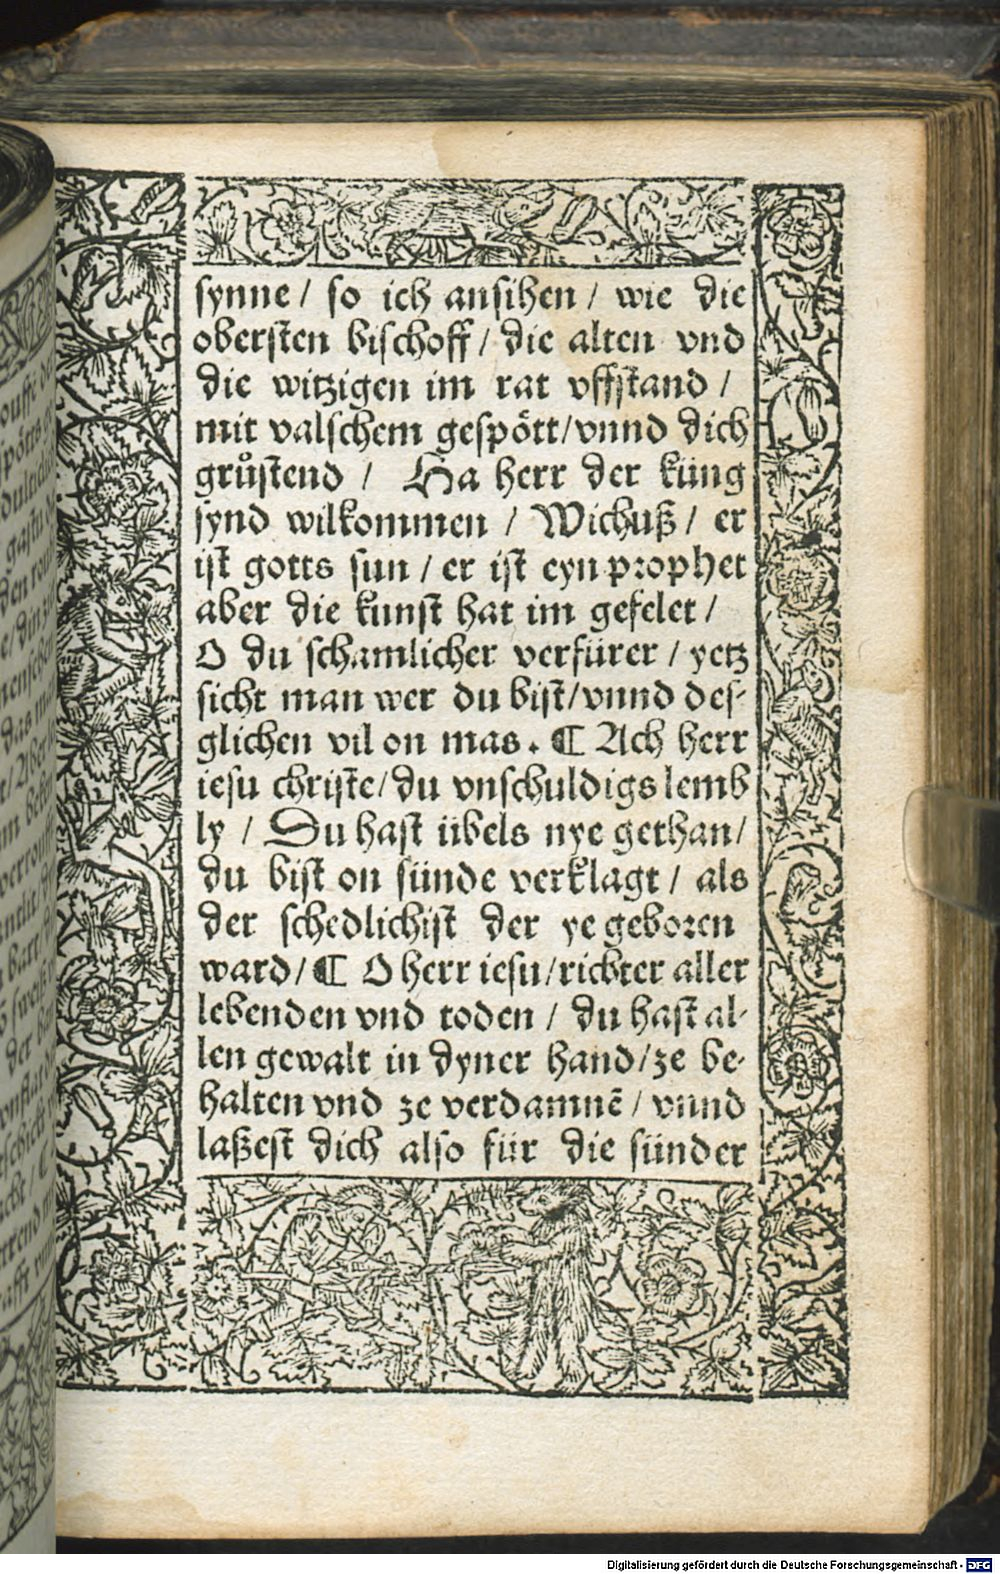 synne / so ich ansihen / wie die
obersten bischoff / die alten vnd
die witzigen im rat vffstand /
mit valschem gespött/vnnd dich
grůstend / Ha herr der küng
synd wilkommen / Wichuß / er
ist gotts sun / er ist eyn prophet
aber die kunst hat im gefelet /
O du schamlicher verfürer / yetz
sicht man wer du bist/vnnd des-
glichen vil on mas. ¶ Ach herr
iesu christe/du vnschuldigs lemb
ly / Du hast übels nye gethan/
du bist on sünde verklagt / als
der schedlichist der ye geboren
ward/ ¶ O herr iesu/richter aller
lebenden vnd toden / du hast al-
len gewalt in dyner hand/ze be-
halten vnd ze verdamnē / vnnd
laßest dich also für die sünder
Digitalisierung gefördert durch die Deutsche Forschungsgemeinschaft - DFG